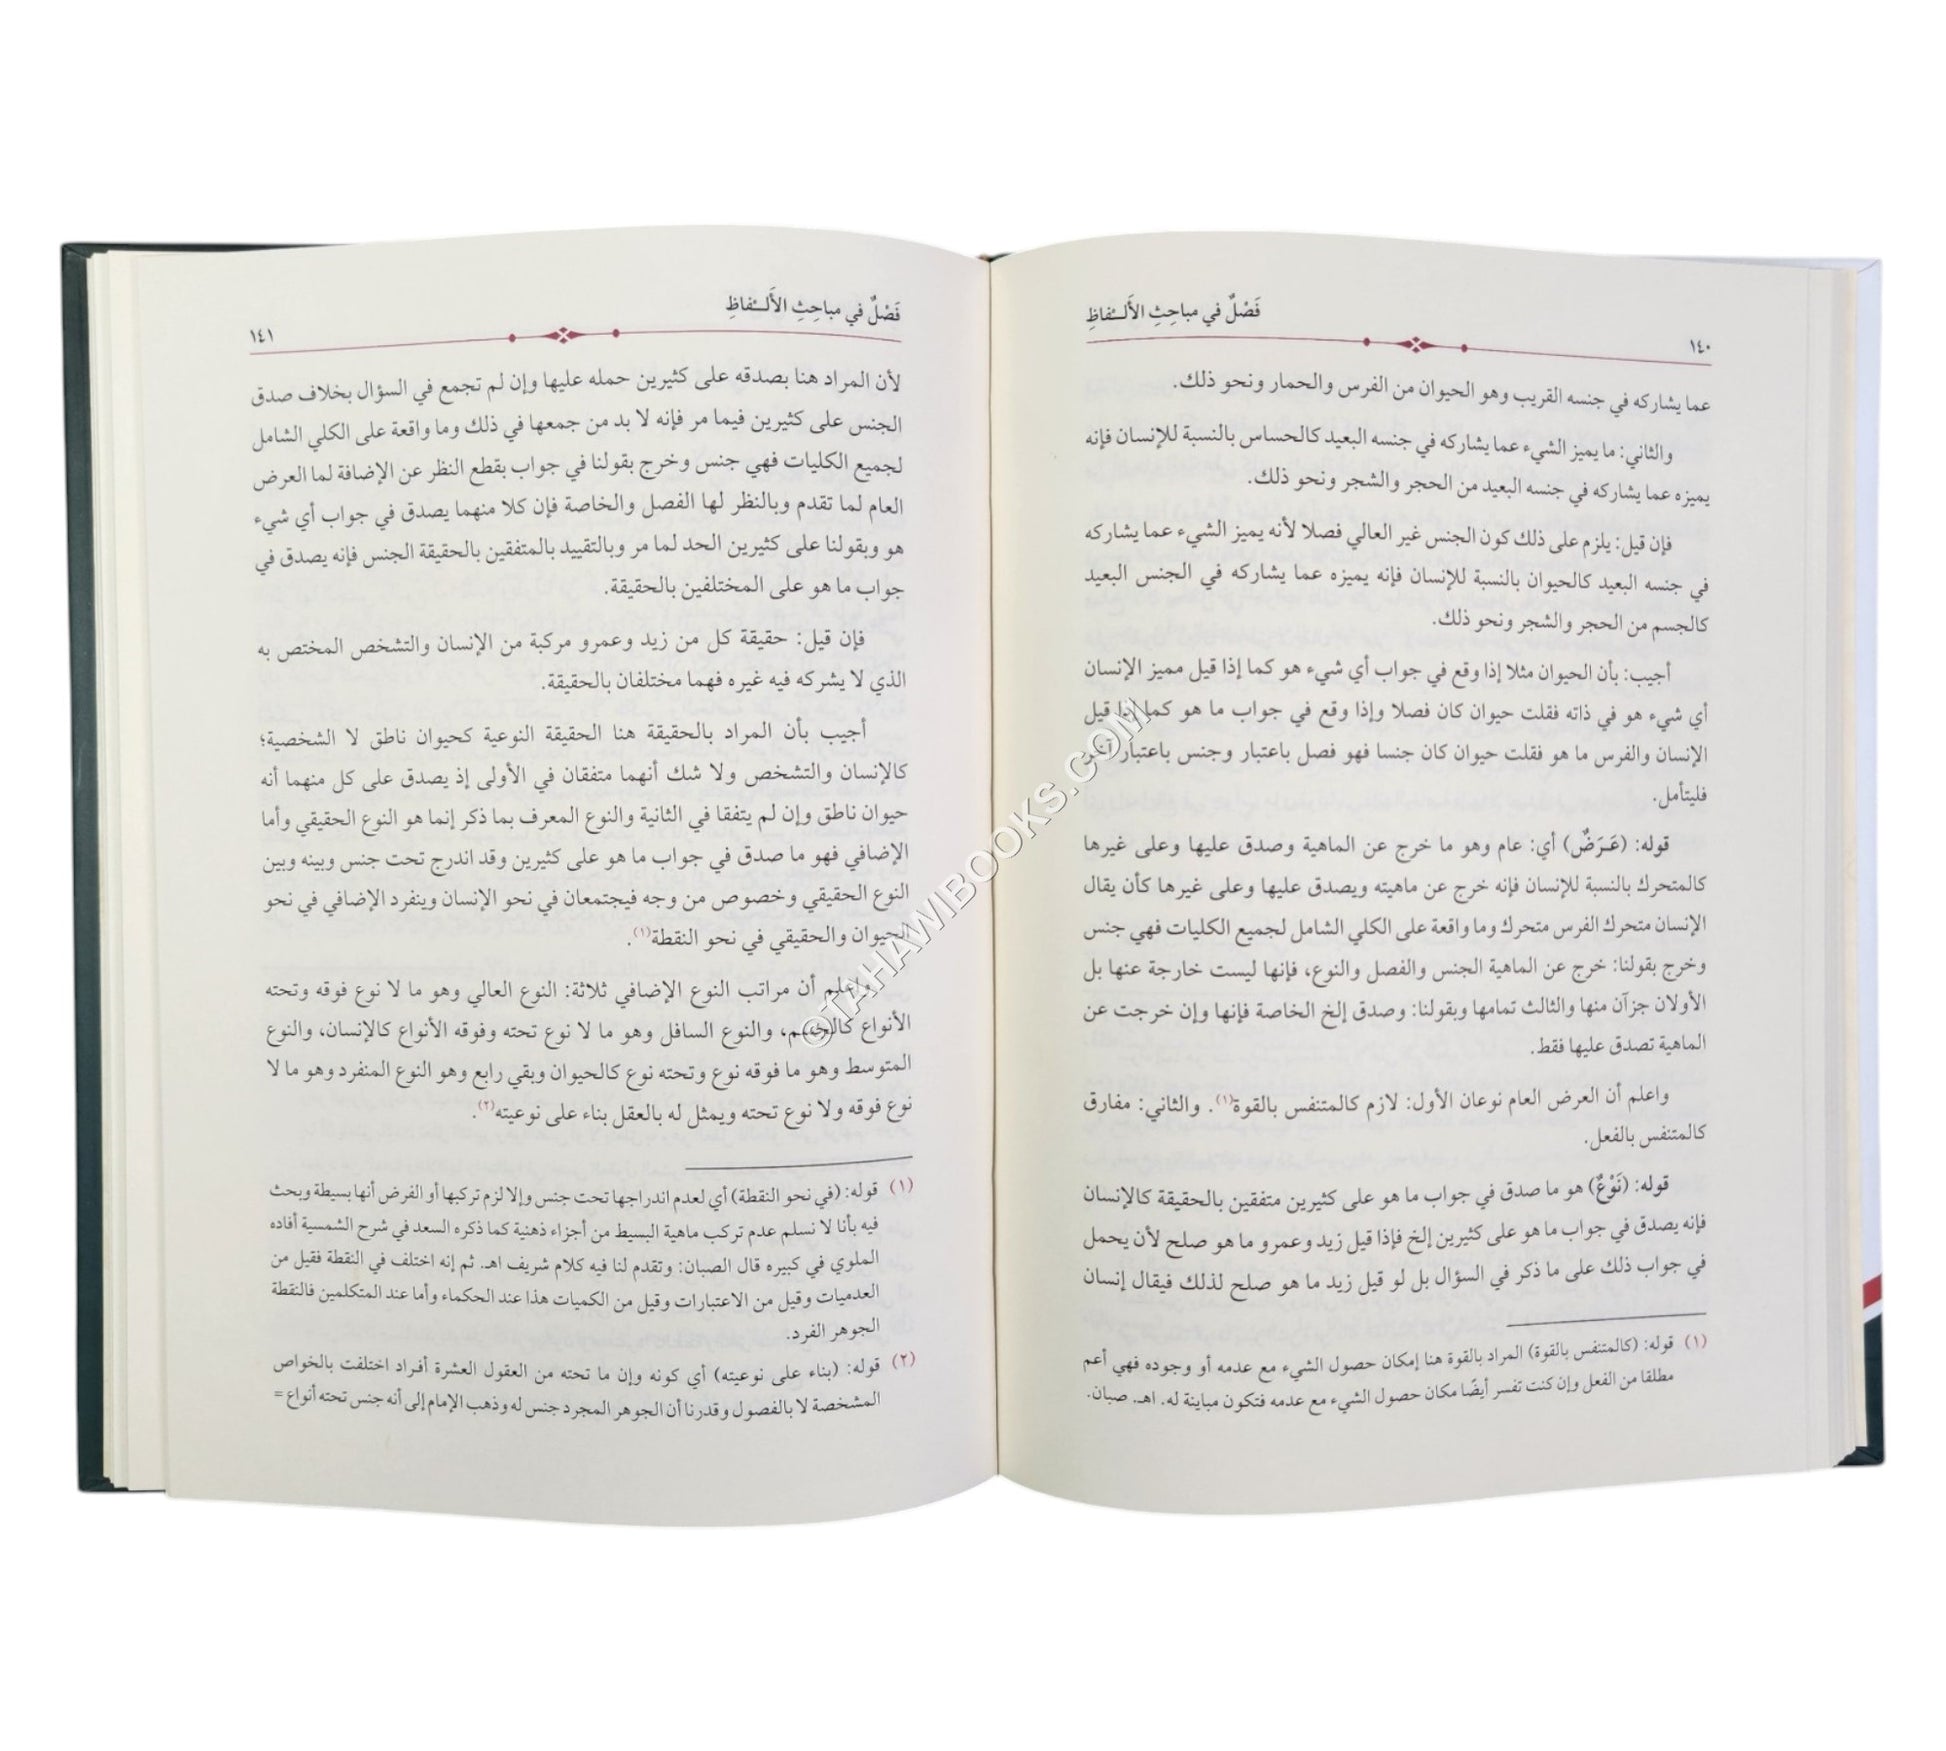 فَصْلٌ في مباحِثِ الأَلْـفاظِ
١٤٠
عما يشاركه في جنسه القريب وهو الحيوان من الفرس والحمار ونحو ذلك.
والثاني: ما يميز الشيء عما يشاركه في جنسه البعيد كالحساس بالنسبة للإنسان فإنه
يميزه عما يشاركه في جنسه البعيد من الحجر والشجر ونحو ذلك.
فإن قيل: يلزم على ذلك كون الجنس غير العالي فصلا لأنه يميز الشيء عما يشاركه
في جنسه البعيد كالحيوان بالنسبة للإنسان فإنه يميزه عما يشاركه في الجنس البعيد
كالجسم من الحجر والشجر ونحو ذلك.
أجيب: بأن الحيوان مثلا إذا وقع في جواب أي شيء هو كما إذا قيل مميز الإنسان
أي شيء هو في ذاته فقلت حيوان كان فصلا وإذا وقع في جواب ما هو كما إذا قيل
الإنسان والفرس ما هو فقلت حيوان كان جنسا فهو فصل باعتبار وجنس باعتبار آخر
فليتأمل.
قوله: (عَـرَضٌ) أي: عام وهو ما خرج عن الماهية وصدق عليها وعلى غيرها
كالمتحرك بالنسبة للإنسان فإنه خرج عن ماهيته ويصدق عليها وعلى غيرها كأن يقال
الإنسان متحرك الفرس متحرك وما واقعة على الكلي الشامل لجميع الكليات فهي جنس
وخرج بقولنا: خرج عن الماهية الجنس والفصل والنوع، فإنها ليست خارجة عنها بل
الأولان جزآن منها والثالث تمامها وبقولنا: وصدق إلخ الخاصة فإنها وإن خرجت عن
الماهية تصدق عليها فقط.
واعلم أن العرض العام نوعان الأول: لازم كالمتنفس بالقوة(١). والثاني: مفارق
كالمتنفس بالفعل.
قوله: (نَوْعٌ) هو ما صدق في جواب ما هو على كثيرين متفقين بالحقيقة كالإنسان
فإنه يصدق في جواب ما هو على كثيرين إلخ فإذا قيل زيد وعمرو ما هو صلح لأن يحمل
في جواب ذلك على ما ذكر في السؤال بل لو قيل زيد ما هو صلح لذلك فيقال إنسان
(١) قوله: (كالمتنفس بالقوة) المراد بالقوة هنا إمكان حصول الشيء مع عدمه أو وجوده فهي أعم
مطلقا من الفعل وإن كنت تفسر أيضًا مكان حصول الشيء مع عدمه فتكون مباينة له. اهـ. صبان.
فَصْلٌ في مباحِثِ الأَلْـفاظِ
١٤١
لأن المراد هنا بصدقه على كثيرين حمله عليها وإن لم تجمع في السؤال بخلاف صدق
الجنس على كثيرين فيما مر فإنه لا بد من جمعها في ذلك وما واقعة على الكلي الشامل
لجميع الكليات فهي جنس وخرج بقولنا في جواب بقطع النظر عن الإضافة لما العرض
العام لما تقدم وبالنظر لها الفصل والخاصة فإن كلا منهما يصدق في جواب أي شيء
هو وبقولنا على كثيرين الحد لما مر وبالتقييد بالمتفقين بالحقيقة الجنس فإنه يصدق في
جواب ما هو على المختلفين بالحقيقة.
فإن قيل: حقيقة كل من زيد وعمرو مركبة من الإنسان والتشخص المختص به
الذي لا يشركه فيه غيره فهما مختلفان بالحقيقة.
أجيب بأن المراد بالحقيقة هنا الحقيقة النوعية كحيوان ناطق لا الشخصية؛
كالإنسان والتشخص ولا شك أنهما متفقان في الأولى إذ يصدق على كل منهما أنه
حيوان ناطق وإن لم يتفقا في الثانية والنوع المعرف بما ذكر إنما هو النوع الحقيقي وأما
الإضافي فهو ما صدق في جواب ما هو على كثيرين وقد اندرج تحت جنس وبينه وبين
النوع الحقيقي وخصوص من وجه فيجتمعان في نحو الإنسان وينفرد الإضافي في نحو
الحيوان والحقيقي في نحو النقطة(١).
واعلم أن مراتب النوع الإضافي ثلاثة: النوع العالي وهو ما لا نوع فوقه وتحته
الأنواع كالجسم، والنوع السافل وهو ما لا نوع تحته وفوقه الأنواع كالإنسان، والنوع
المتوسط وهو ما فوقه نوع وتحته نوع كالحيوان وبقي رابع وهو النوع المنفرد وهو ما لا
نوع فوقه ولا نوع تحته ويمثل له بالعقل بناء على نوعيته(٢).
(١) قوله: (في نحو النقطة) أي لعدم اندراجها تحت جنس وإلا لزم تركبها أو الفرض أنها بسيطة وبحث
فيه بأنا لا نسلم عدم تركب ماهية البسيط من أجزاء ذهنية كما ذكره السعد في شرح الشمسية أفاده
الملوي في كبيره قال الصبان: وتقدم لنا فيه كلام شريف اهـ. ثم إنه اختلف في النقطة فقيل من
العدميات وقيل من الاعتبارات وقيل من الكميات هذا عند الحكماء وأما عند المتكلمين فالنقطة
الجوهر الفرد.
(٢) قوله: (بناء على نوعيته) أي كونه وإن ما تحته من العقول العشرة أفـراد اختلفت بالخواص
المشخصة لا بالفصول وقدرنا أن الجوهر المجرد جنس له وذهب الإمام إلى أنه جنس تحته أنواع =
©TAHAWIBOOKS.COM